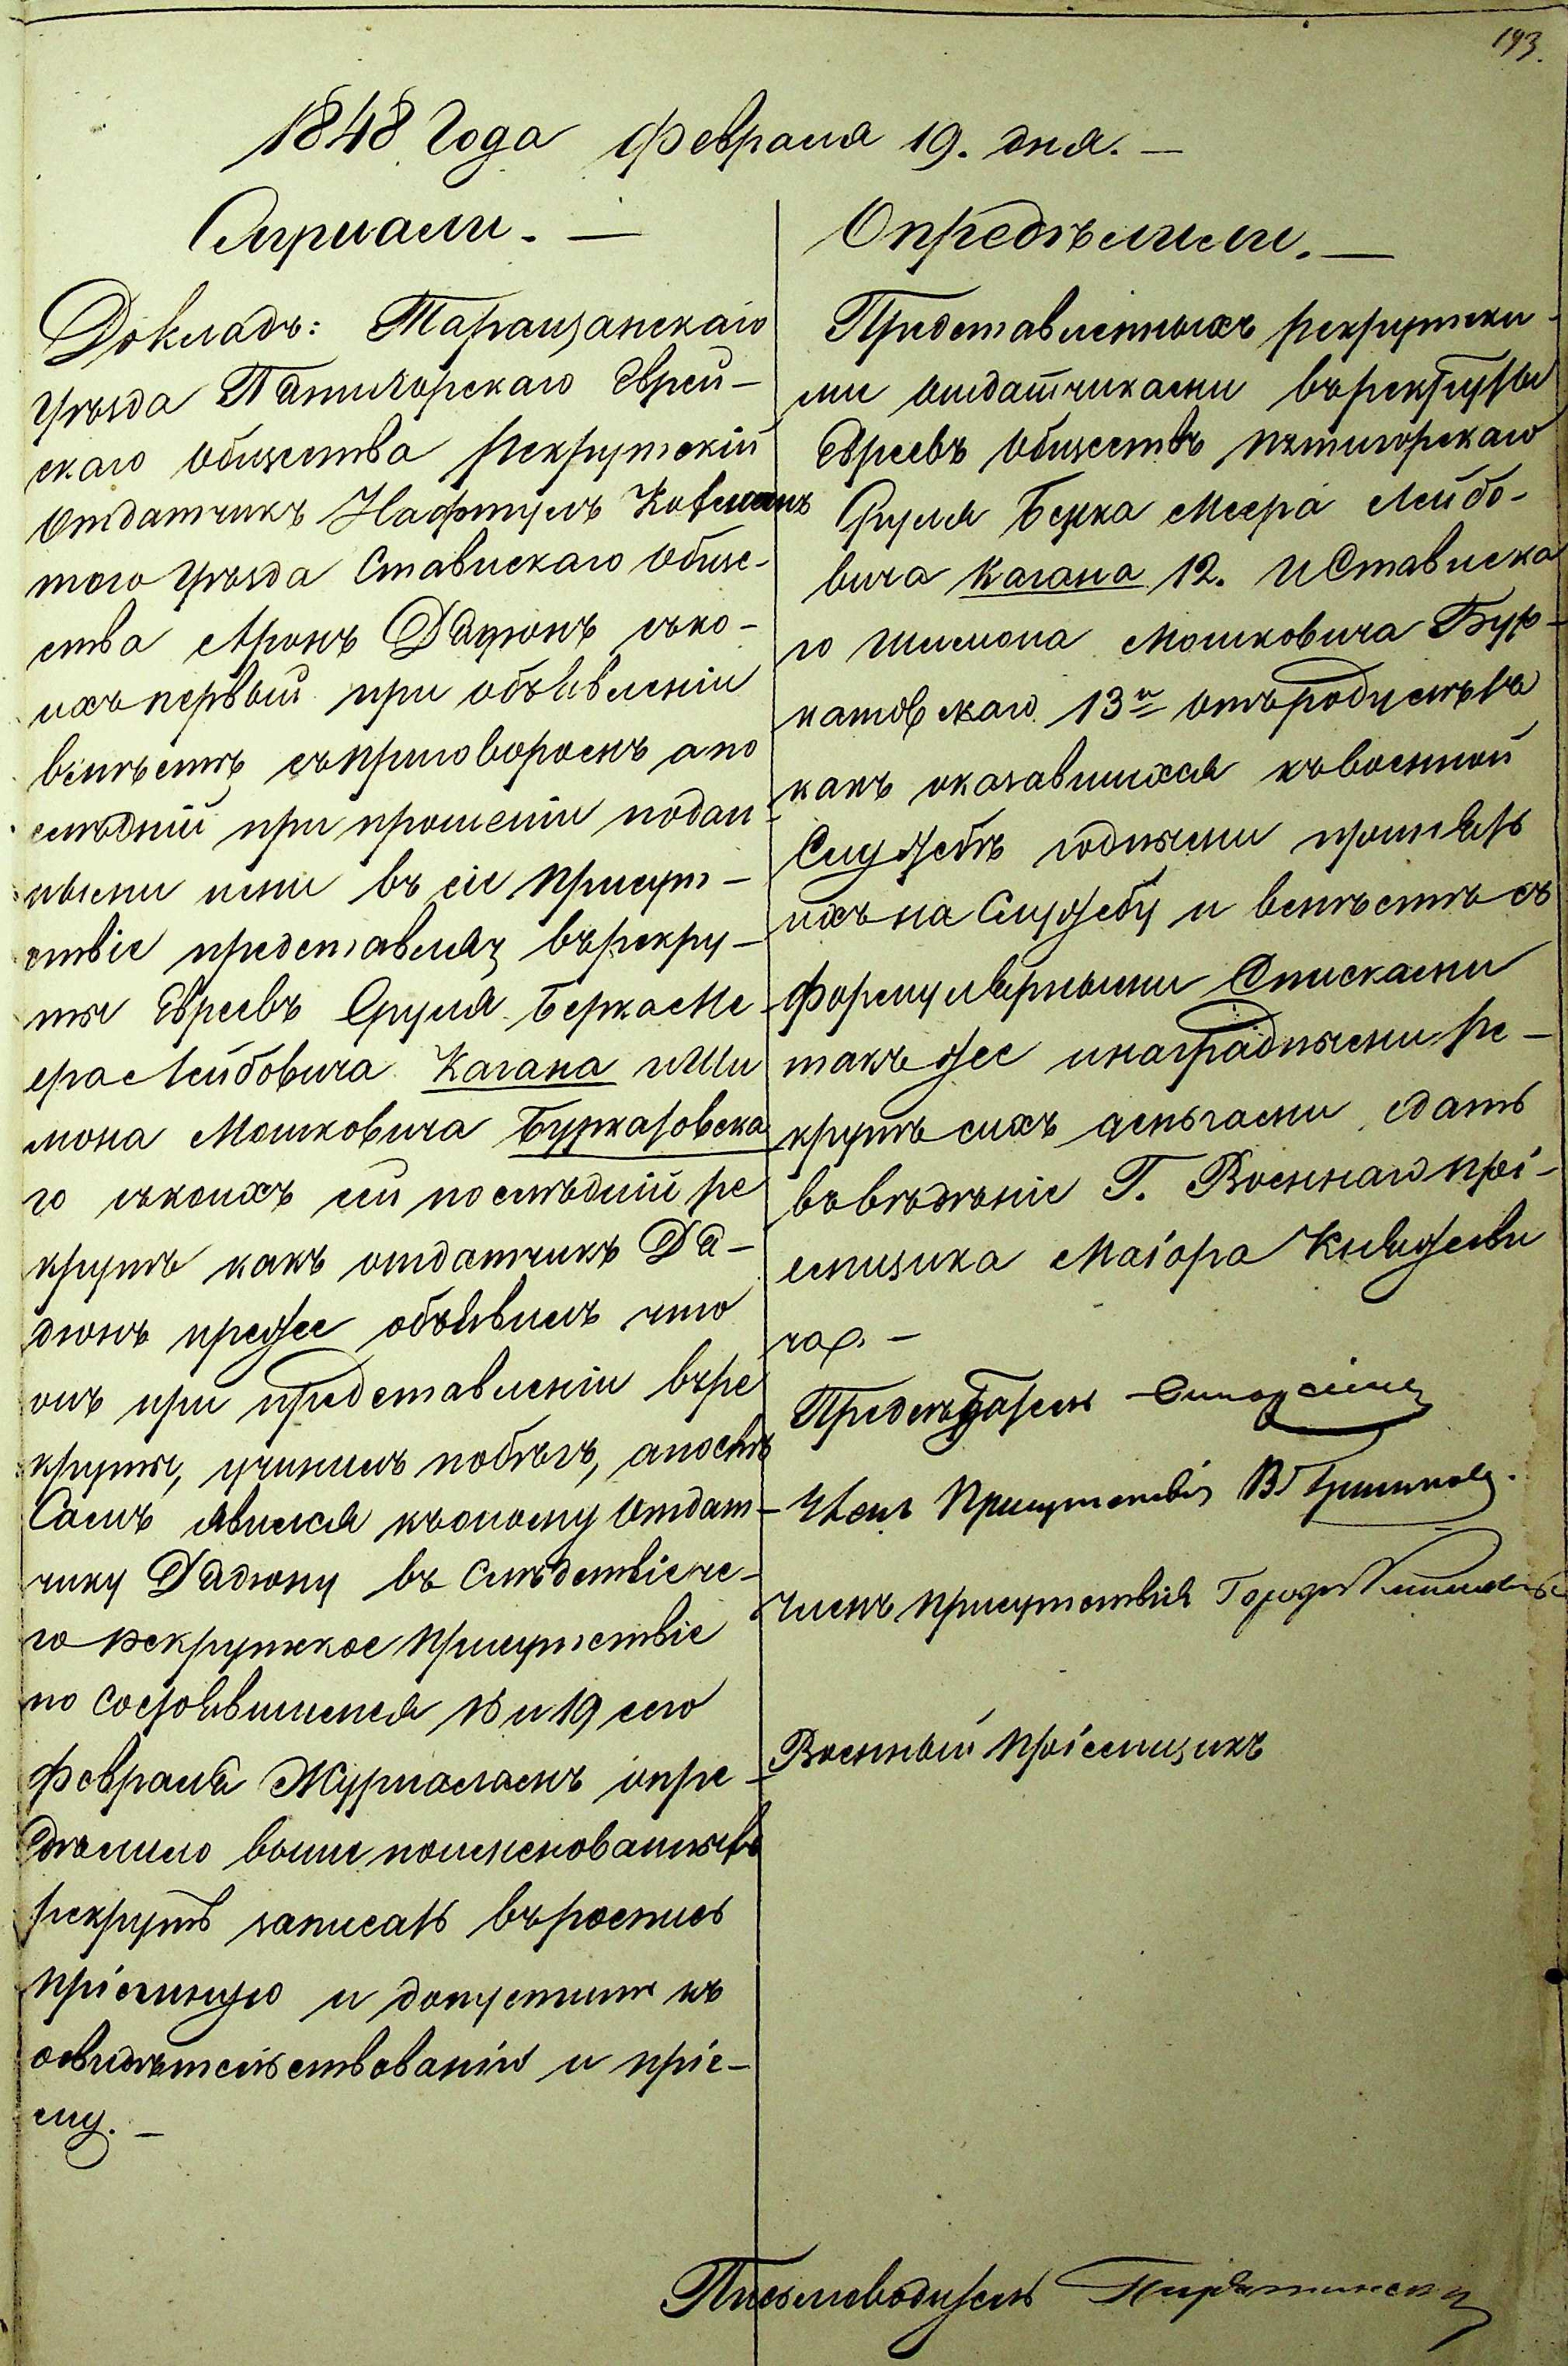 193.
1848 Года Февраля 19. дня. —
Слушали. —
Докладъ: Таращанскаго
уѣзда Пятигорскаго Еврей-
скаго общества рекрутскій
отдатчикъ Нафтулъ
того уѣзда Ставискаго обще-
ства Аронъ Дадюнъ съ ко-
ихъ первый при объявленіи
вмѣстѣ съ приговоромъ а по
слѣдній при прошеніи подан-
ными ими въ сіе присут-
ствіе представляя въ рекру-
ты Евреевъ Сруля Берка Ме-
ера Лейбовича Кагана и Ши
мона Мошковича Буркатовска
го съ коихъ сей послѣдній ре
крутъ какъ отдатчикъ Да-
дюнъ прежде объявилъ что
онъ при представленіи въ ре
круты, учинилъ побѣгъ, а послѣ
самъ явился къ оному отдат-
чику Дадюну въ слѣдствіе че-
го рекрутское присутствіе
по состоявшимся 18 и 19 сего
Февраля Журналамъ опре-
дѣлило выше поименованныхъ
рекрутъ записать въ роспись
пріемную и допустить къ
освидѣтельствованію и пріе-
му. —
Опредѣлили. —
Представленныхъ рекрутски-
ми отдатчиками въ рекруты
Евреевъ обществъ пятигорскаго
Сруля Берка Меера Лейбо-
вича Кагана 12. и Стависка
го Шимона Мошковича Бур-
катовскаго 13и отъ роду лѣтъ
какъ оказавшихся къ военной
службѣ годными принять
ихъ на службу и вмѣстѣ съ
формулярными списками
такъ же и наградными ре-
крутъ сихъ деньгами сдать
въ вѣдѣніе Г. Военнаго прі-
емщика Маіора Княжеви
ча. —
Предсѣдатель
Членъ Присутствія
Членъ присутствія Город
Военный пріемщикъ
Письмоводитель